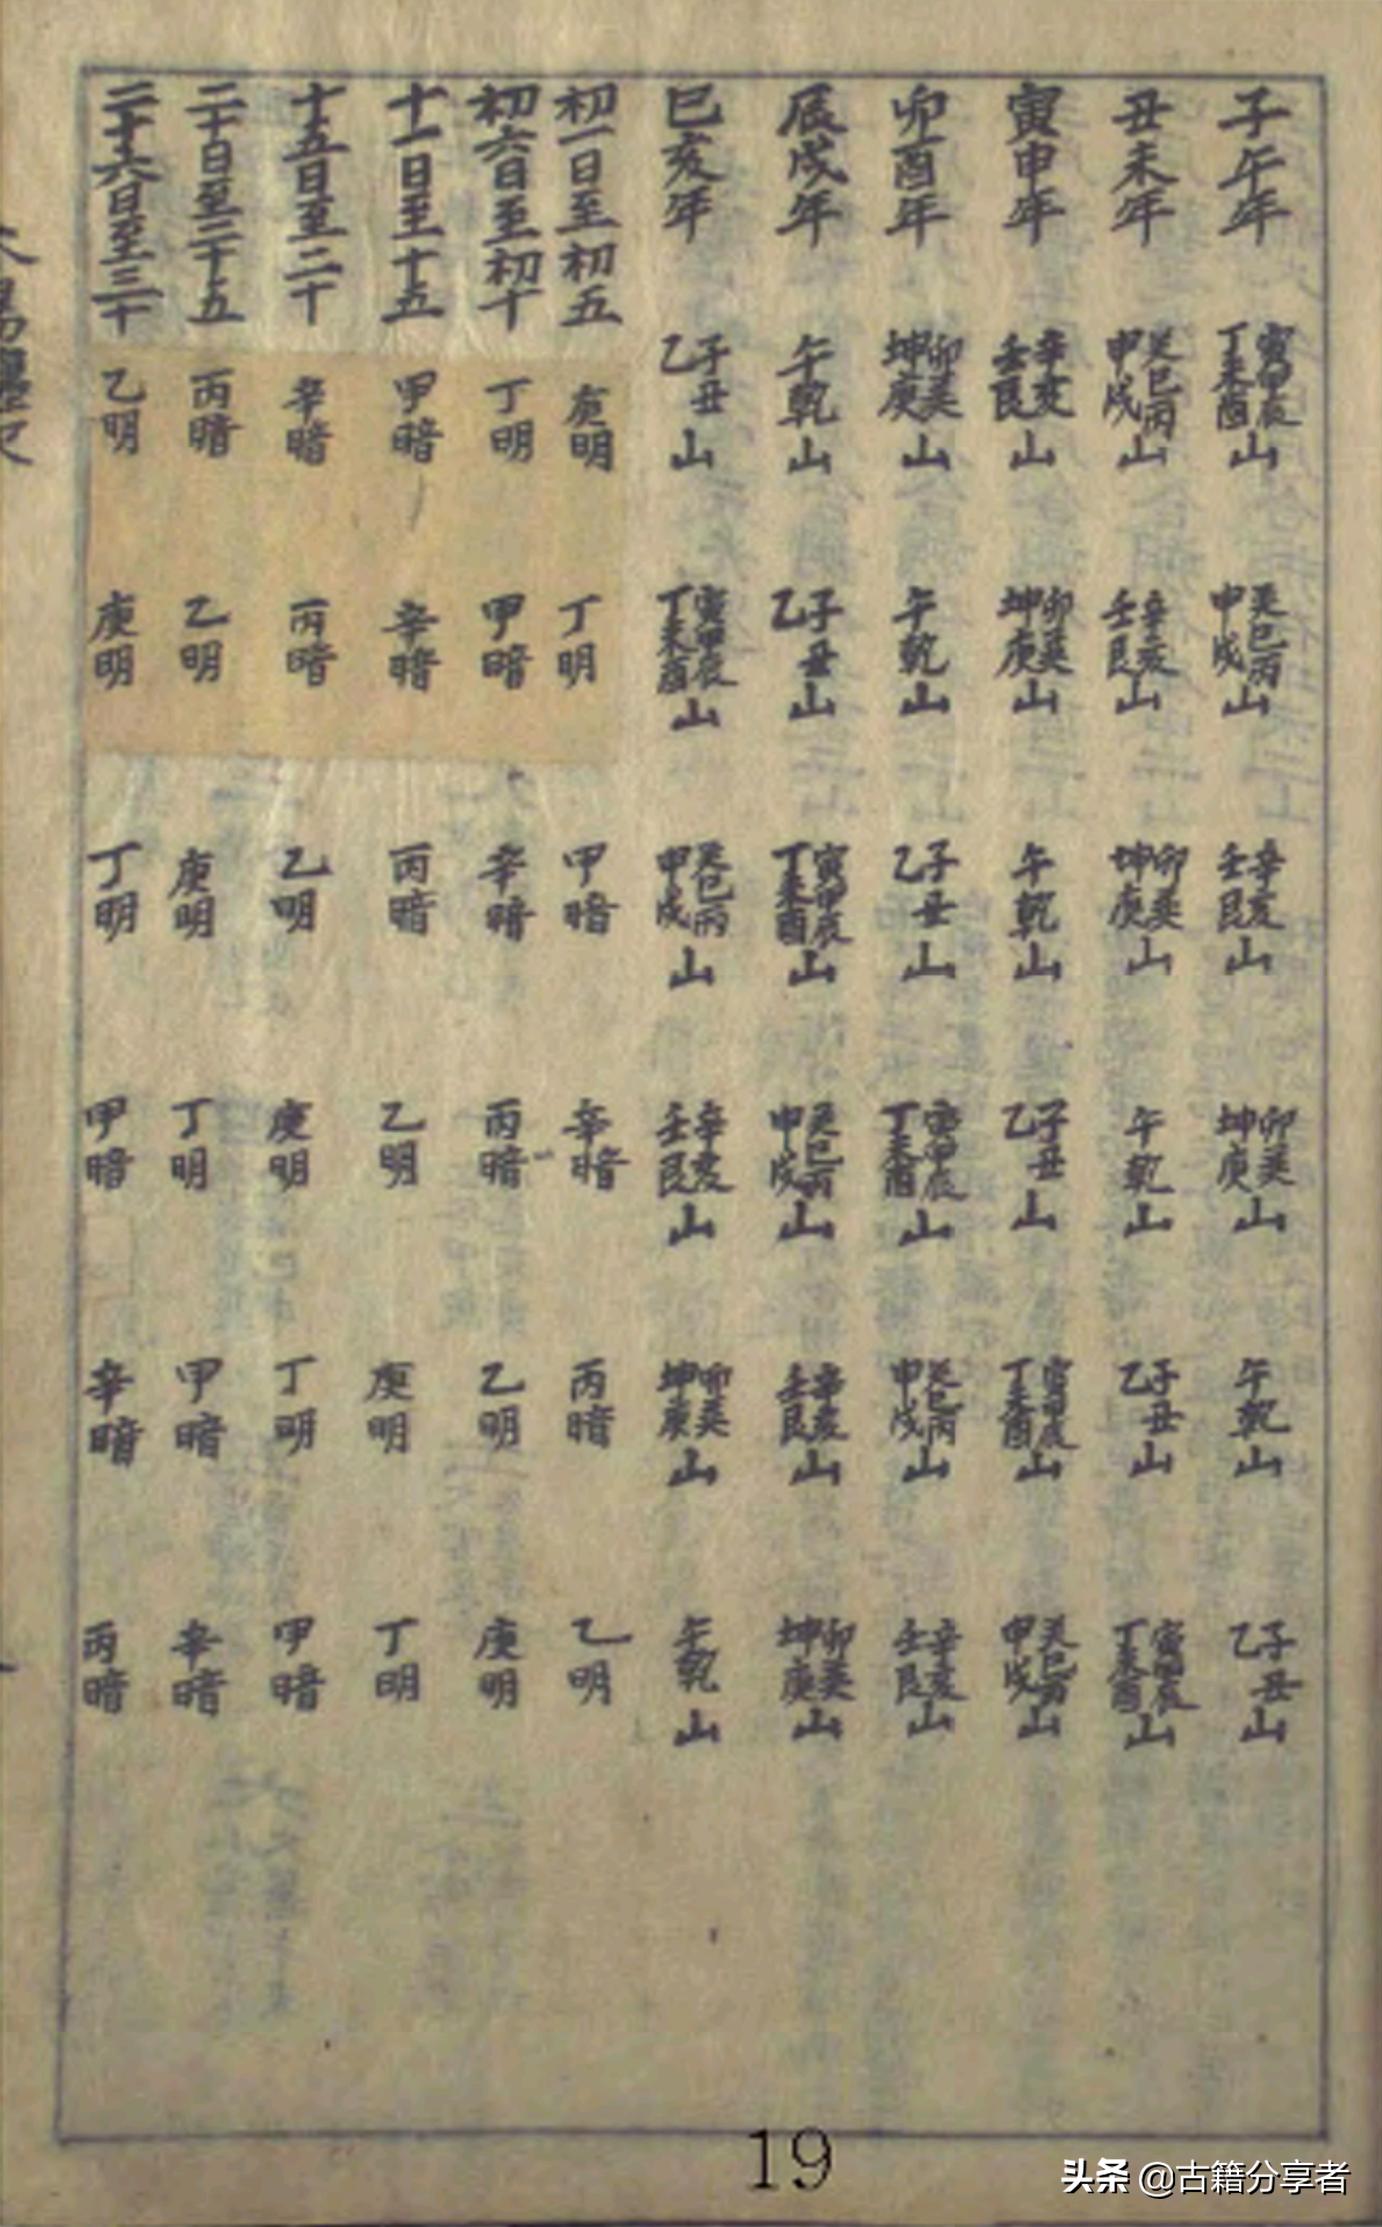 子午年 寅甲辰丁未酉山 癸巳丙申戌山 辛亥壬艮山 卯巽坤庚山 午乾山 子丑乙山
丑未年 癸巳丙申戌山 辛亥壬艮山 卯巽坤庚山 午乾山 子丑乙山 寅甲辰丁未酉山
寅申年 辛亥壬艮山 卯巽坤庚山 午乾山 子丑乙山 寅甲辰丁未酉山 癸巳丙申戌山
卯酉年 卯巽坤庚山 午乾山 子丑乙山 寅甲辰丁未酉山 癸巳丙申戌山 辛亥壬艮山
辰戌年 午乾山 子丑乙山 寅甲辰丁未酉山 癸巳丙申戌山 辛亥壬艮山 卯巽坤庚山
巳亥年 子丑乙山 寅甲辰丁未酉山 癸巳丙申戌山 辛亥壬艮山 卯巽坤庚山 午乾山
初一日至初五 庚明 丁明 甲暗 辛暗 丙暗 乙明
初六日至初十 丁明 甲暗 辛暗 丙暗 乙明 庚明
十一日至十五 甲暗 辛暗 丙暗 乙明 庚明 丁明
十五日至二十 辛暗 丙暗 乙明 庚明 丁明 甲暗
二十日至二十五 丙暗 乙明 庚明 丁明 甲暗 辛暗
二十六日至三十 乙明 庚明 丁明 甲暗 辛暗 丙暗
19
头条 @古籍分享者